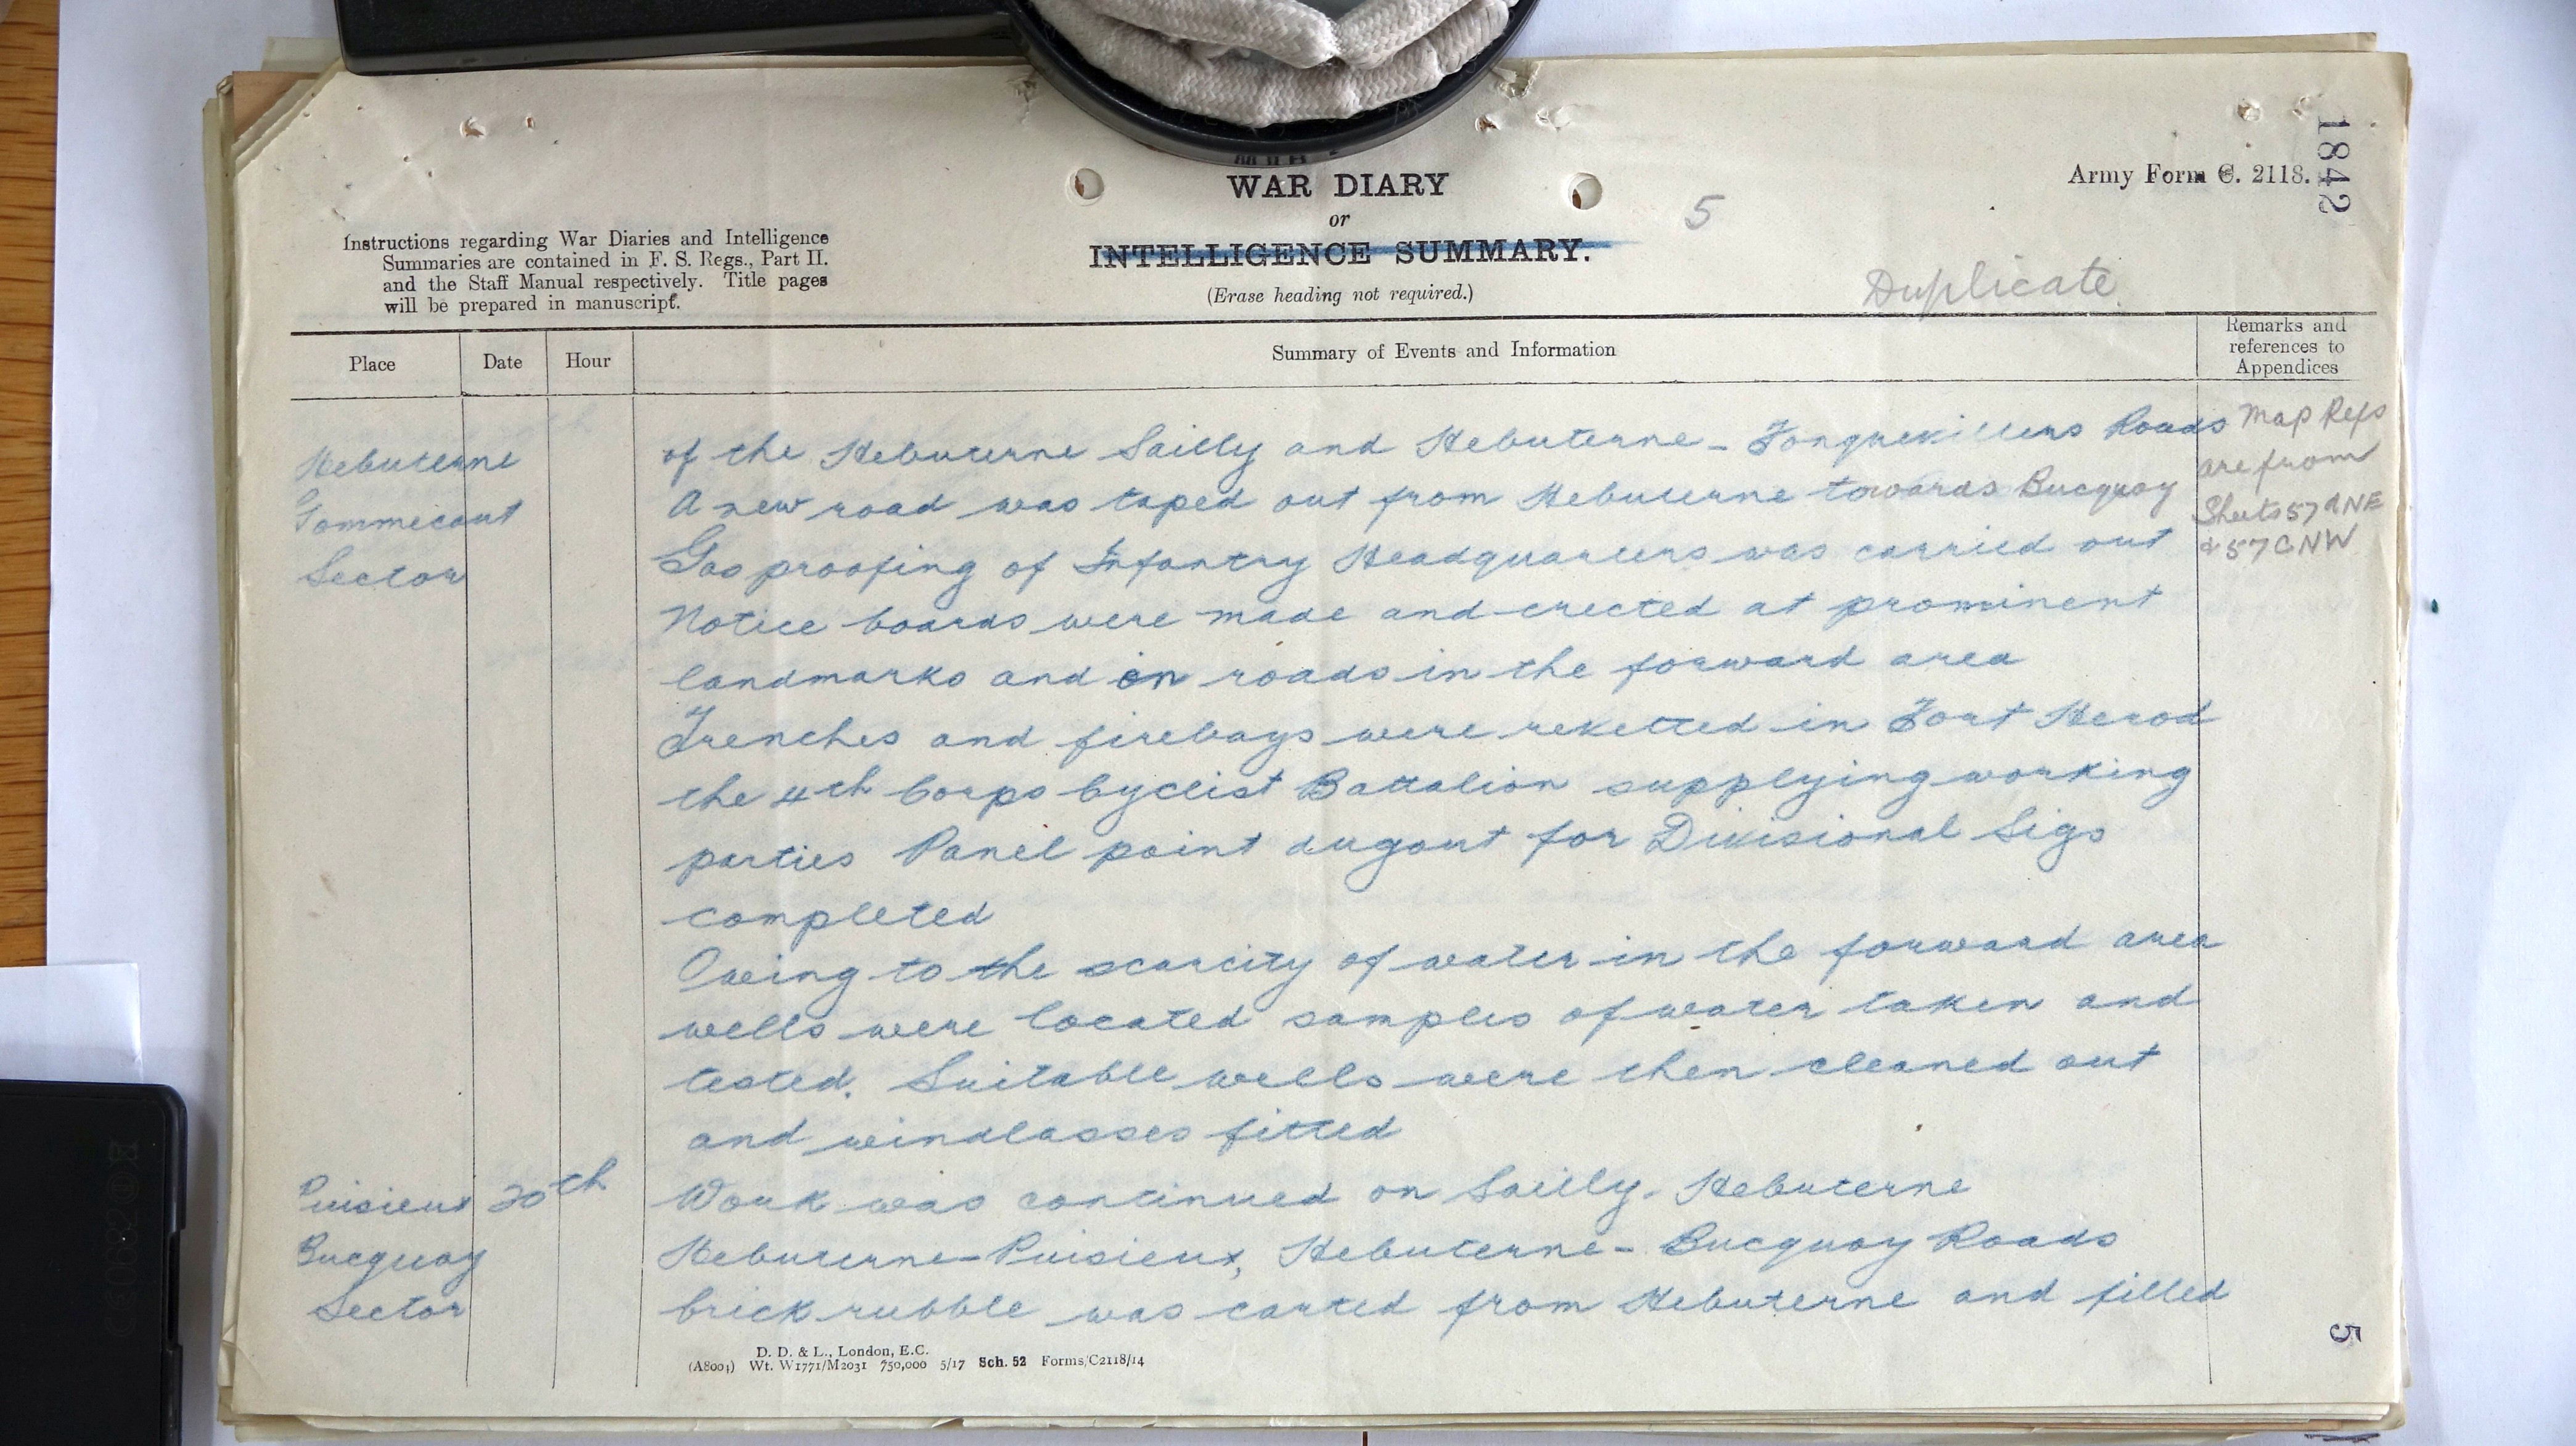 1842
Army Form C. 2118.
WAR DIARY
or
INTELLIGENCE SUMMARY.
(Erase heading not required.)
5
Duplicate
Instructions regarding War Diaries and Intelligence
Summaries are contained in F. S. Regs., Part II.
and the Staff Manual respectively. Title pages
will be prepared in manuscript.
Place
Date
Hour
Summary of Events and Information
Remarks and
references to
Appendices
Hebuterne
Gommecourt
Sector
of the Hebuterne Sailly and Hebuterne - Fonquevillers Roads
A new road was taped out from Hebuterne towards Bucquoy
Gas proofing of Infantry Headquarters was carried out
Notice boards were made and erected at prominent
landmarks and on roads in the forward area
Trenches and firebays were revetted in Fort Herod
the 4th Corps Cyclist Battalion supplying working
parties Panel point dugout for Divisional Sigs
completed
Owing to the scarcity of water in the forward area
wells were located samples of water taken and
tested. Suitable wells were then cleaned out
and windlasses fitted
Map Refs
are from
Sheets 57D NE
& 57 C NW
Puisieux
Bucquoy
Sector
20th
Work was continued on Sailly - Hebuterne
Hebuterne - Puisieux, Hebuterne - Bucquoy Roads
brick rubble was carted from Hebuterne and filled
D. D. & L., London, E.C.
(A8004) Wt. W1771/M2031 750,000 5/17 Sch. 52 Forms/C2118/14
5